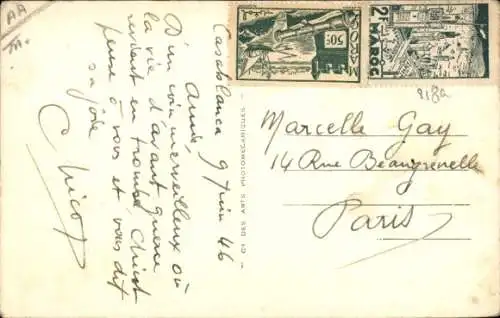 AA
Casablanca 9 Juin 46
Amie,
D'un coin merveilleux où
la vie d'avant guerre
revient en trombe, Chicot
pense à vous et vous dit
sa joie
Chicot
CI DES ARTS PHOTOMECANIQUES
50c
MAROC
2F MAROC
Marcelle Gay
14 Rue Beaugrenelle
Paris